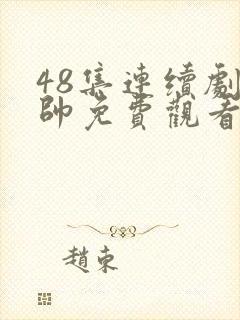 48集連續劇
帥免費觀看
趙東